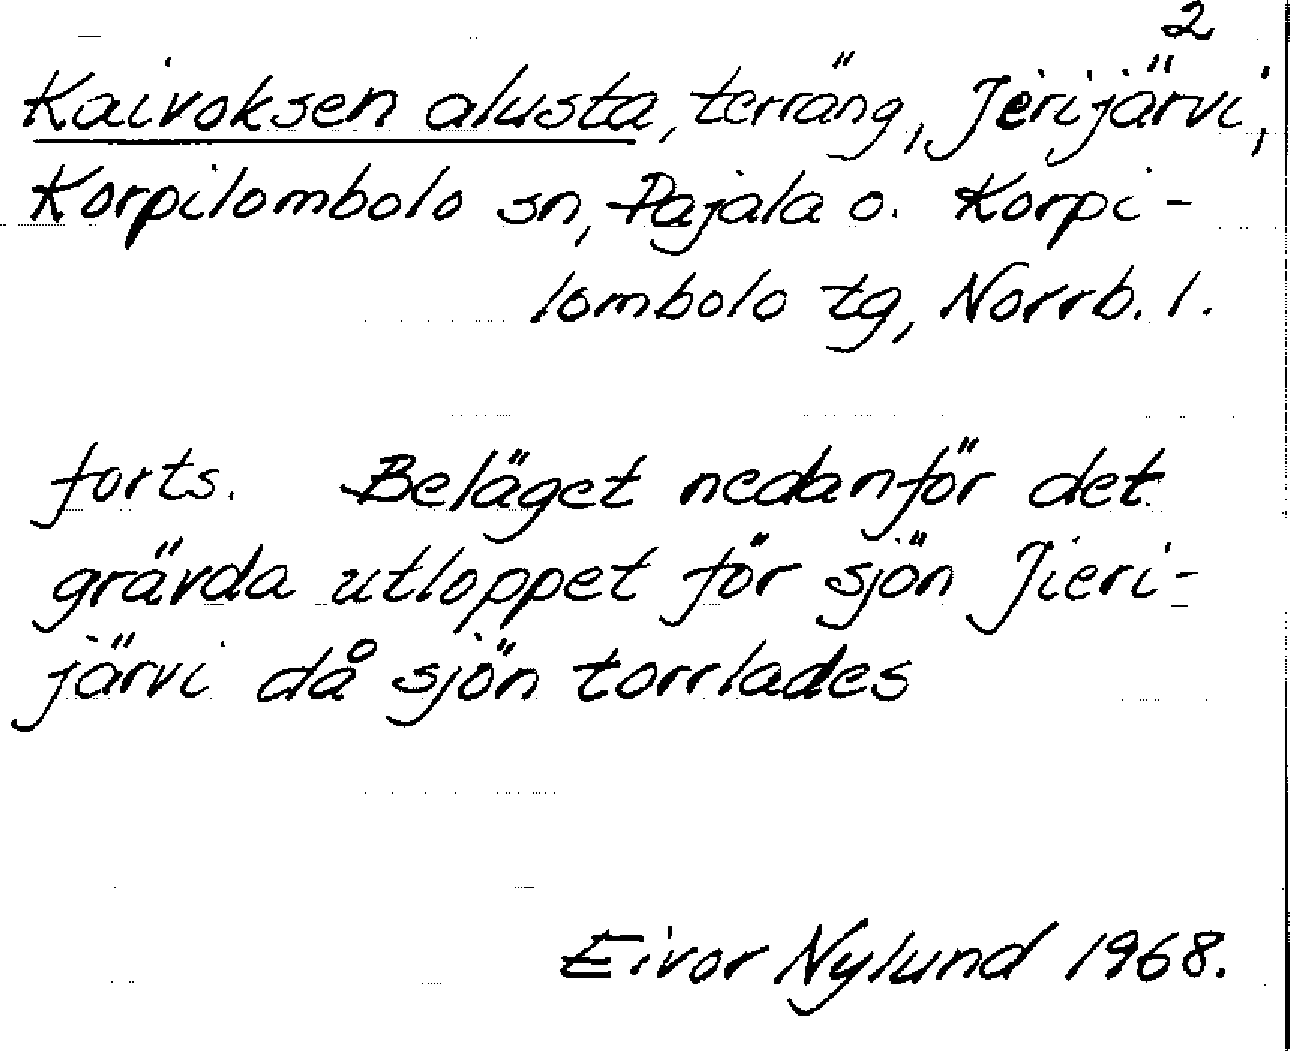 2
Kaivoksen alusta, terräng, Jerijärvi,
Korpilombolo sn, Pajala o. Korpi-
lombolo tg, Norrb. l.
forts. Beläget nedanför det
grävda utloppet för sjön Jieri-
järvi då sjön torrlades
Eivor Nylund 1968.